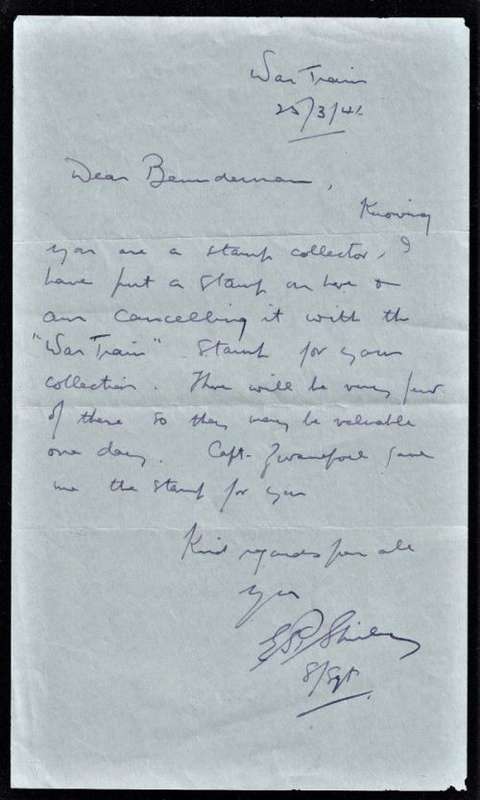 War Train
25/3/41
Dear
Knowing
you are a stamp collector, I
have put a stamp on here &
am cancelling it with the
"War Train" stamp for your
collection. There will be very few
of these so they may be valuable
one day. Capt. gave
me the stamp for you
Kind regards from all
Shirley
S/Sgt.